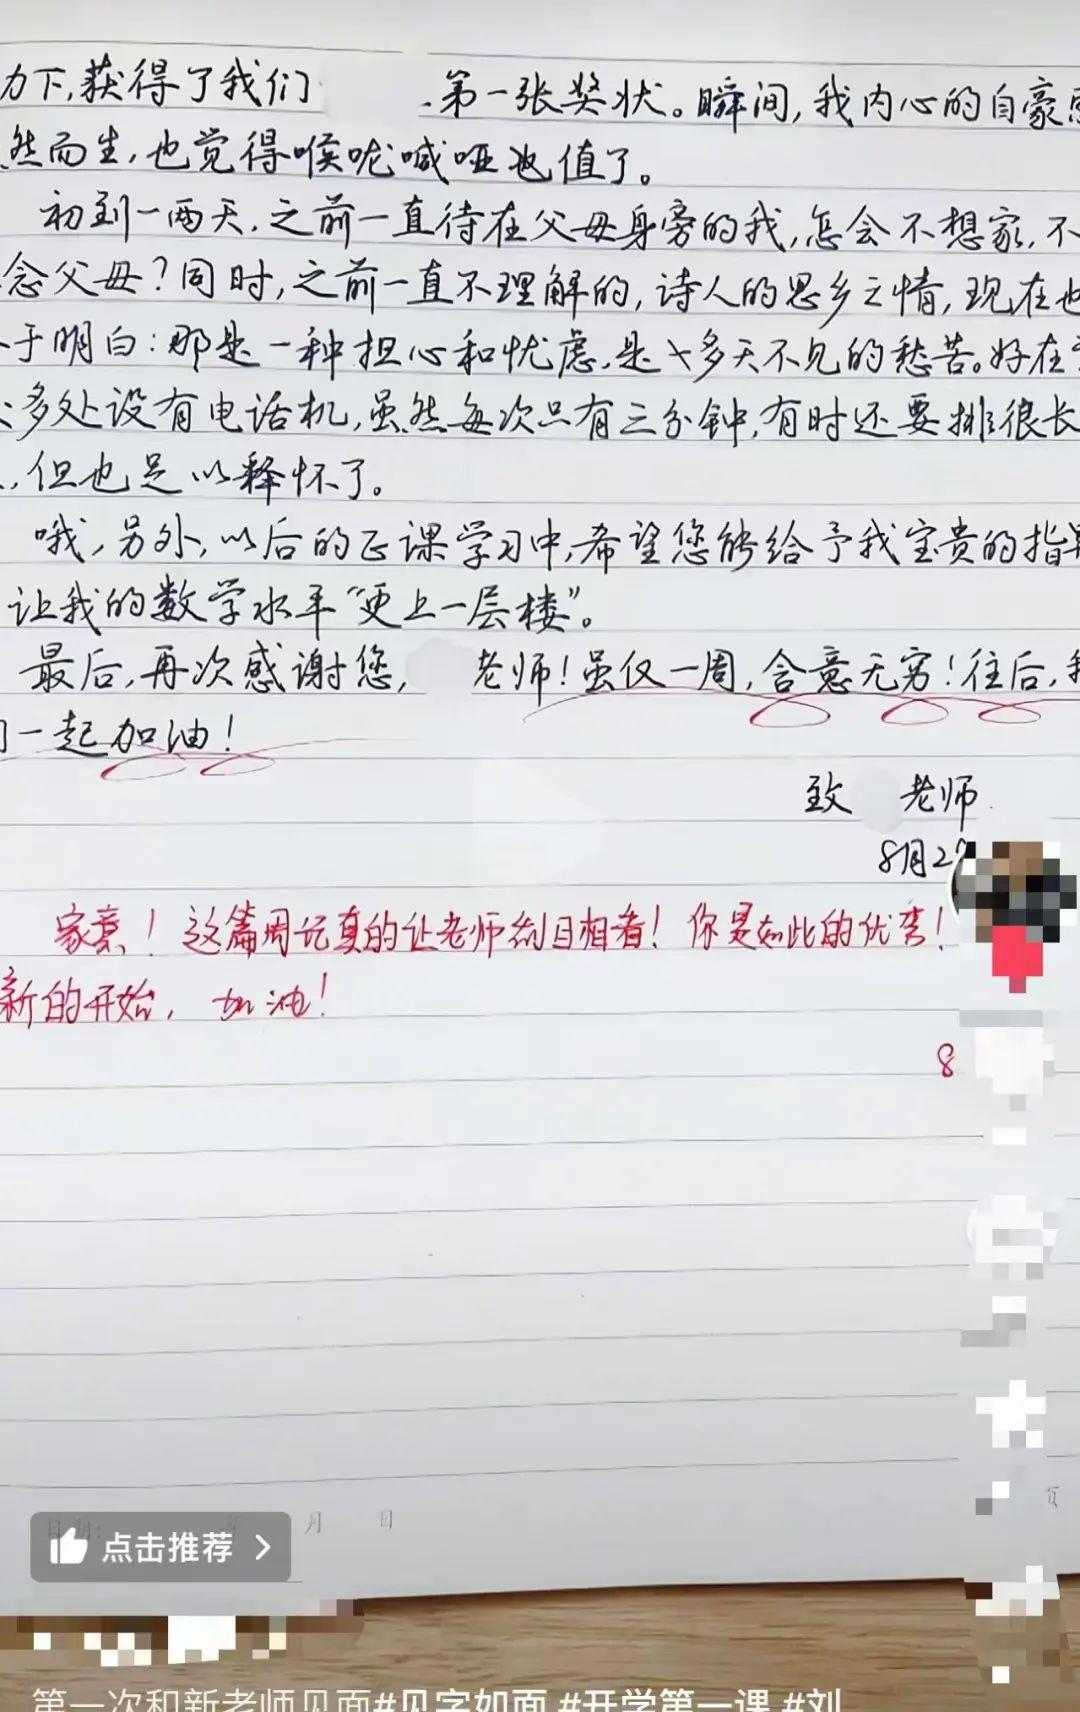 力下,获得了我们 第一张奖状。瞬间,我内心的自豪
然而生,也觉得喉咙喊哑也值了。
初到一两天,之前一直待在父母身旁的我,怎会不想家,不
念父母?同时,之前一直不理解的,诗人的思乡之情,现在也
于明白:那是一种担心和忧虑,是许多天不见的愁苦。好在
多处设有电话机,虽然每次只有三分钟,有时还要排很长
,但也足以释怀了。
哦,另外,以后的正课学习中,希望您能给予我宝贵的指
让我的数学水平“更上一层楼”。
最后,再次感谢您, 老师!虽仅一周,含意无穷!往后,我
们一起加油!
致 老师
8月2
家豪!这篇周记真的让老师刮目相看!你是如此的优秀!
新的开始,加油!
8
月 日
页
点击推荐 >
第一次和新老师见面#见字如面 #开学第一课 #刘